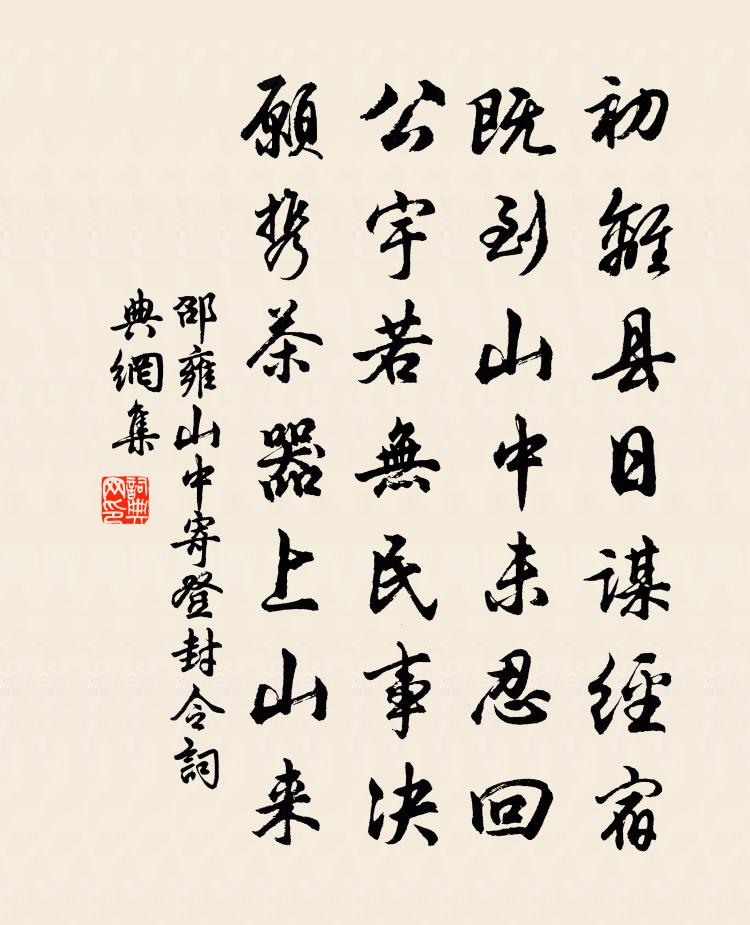 初離县日谋經宿
既到山中未忍回
公宇若無民事决
願携茶器上山来
邵雍山中寄登封令詞
典網集
詞典网印